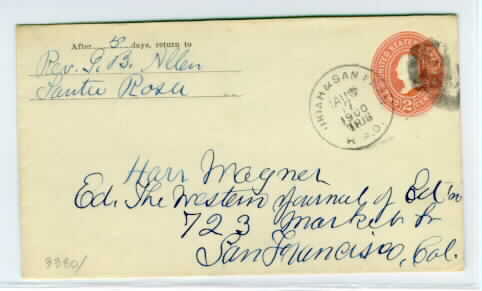 After 5 days, return to
Rev. G. B. Allen
Santa Rosa
UKIAH & SAN F
AUG
17
1900
R.P.O.
UNITED STATES
2
Harr Wagner
Ed. The Western Journal of Ed'n
723 Market St
San Francisco, Cal.
3380/